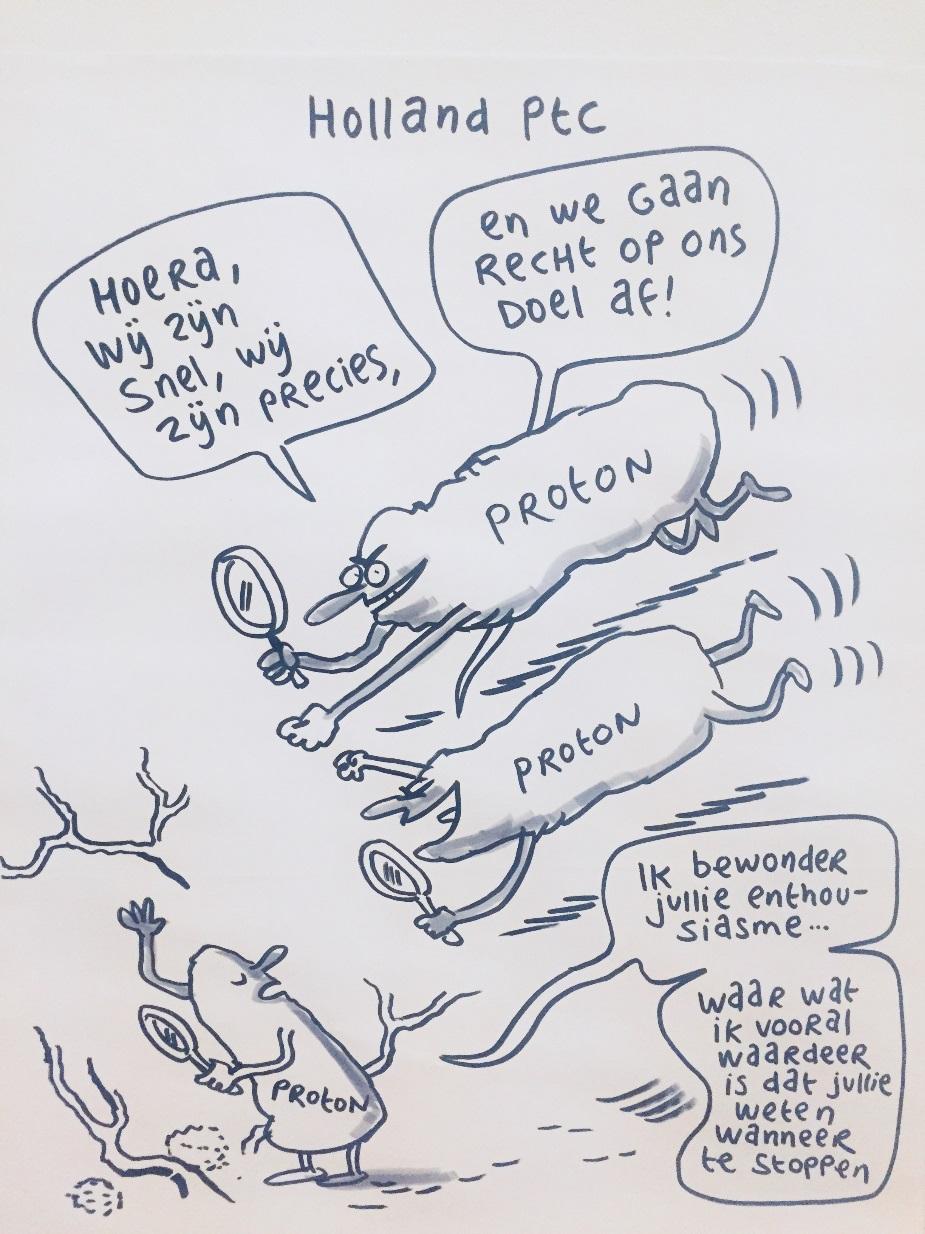 Holland Ptc
Hoera,
wij zijn
snel, wij
zijn precies,
en we gaan
recht op ons
doel af!
Proton
Proton
Ik bewonder
jullie enthou-
siasme...
waar wat
ik vooral
waardeer
is dat jullie
weten
wanneer
te stoppen
Proton